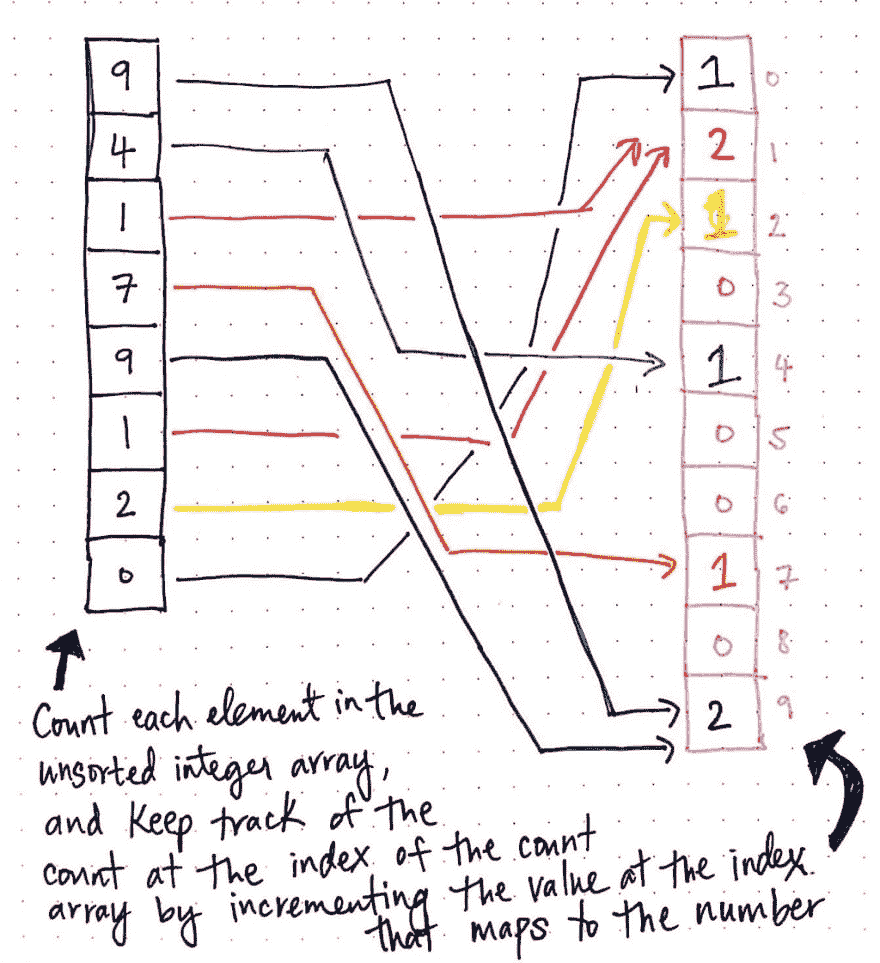 9
4
1
7
9
1
2
0
1 0
2 1
1 2
0 3
1 4
0 5
0 6
1 7
0 8
2 9
Count each element in the
unsorted integer array,
and keep track of the
count at the index of the count
array by incrementing the value at the index
that maps to the number